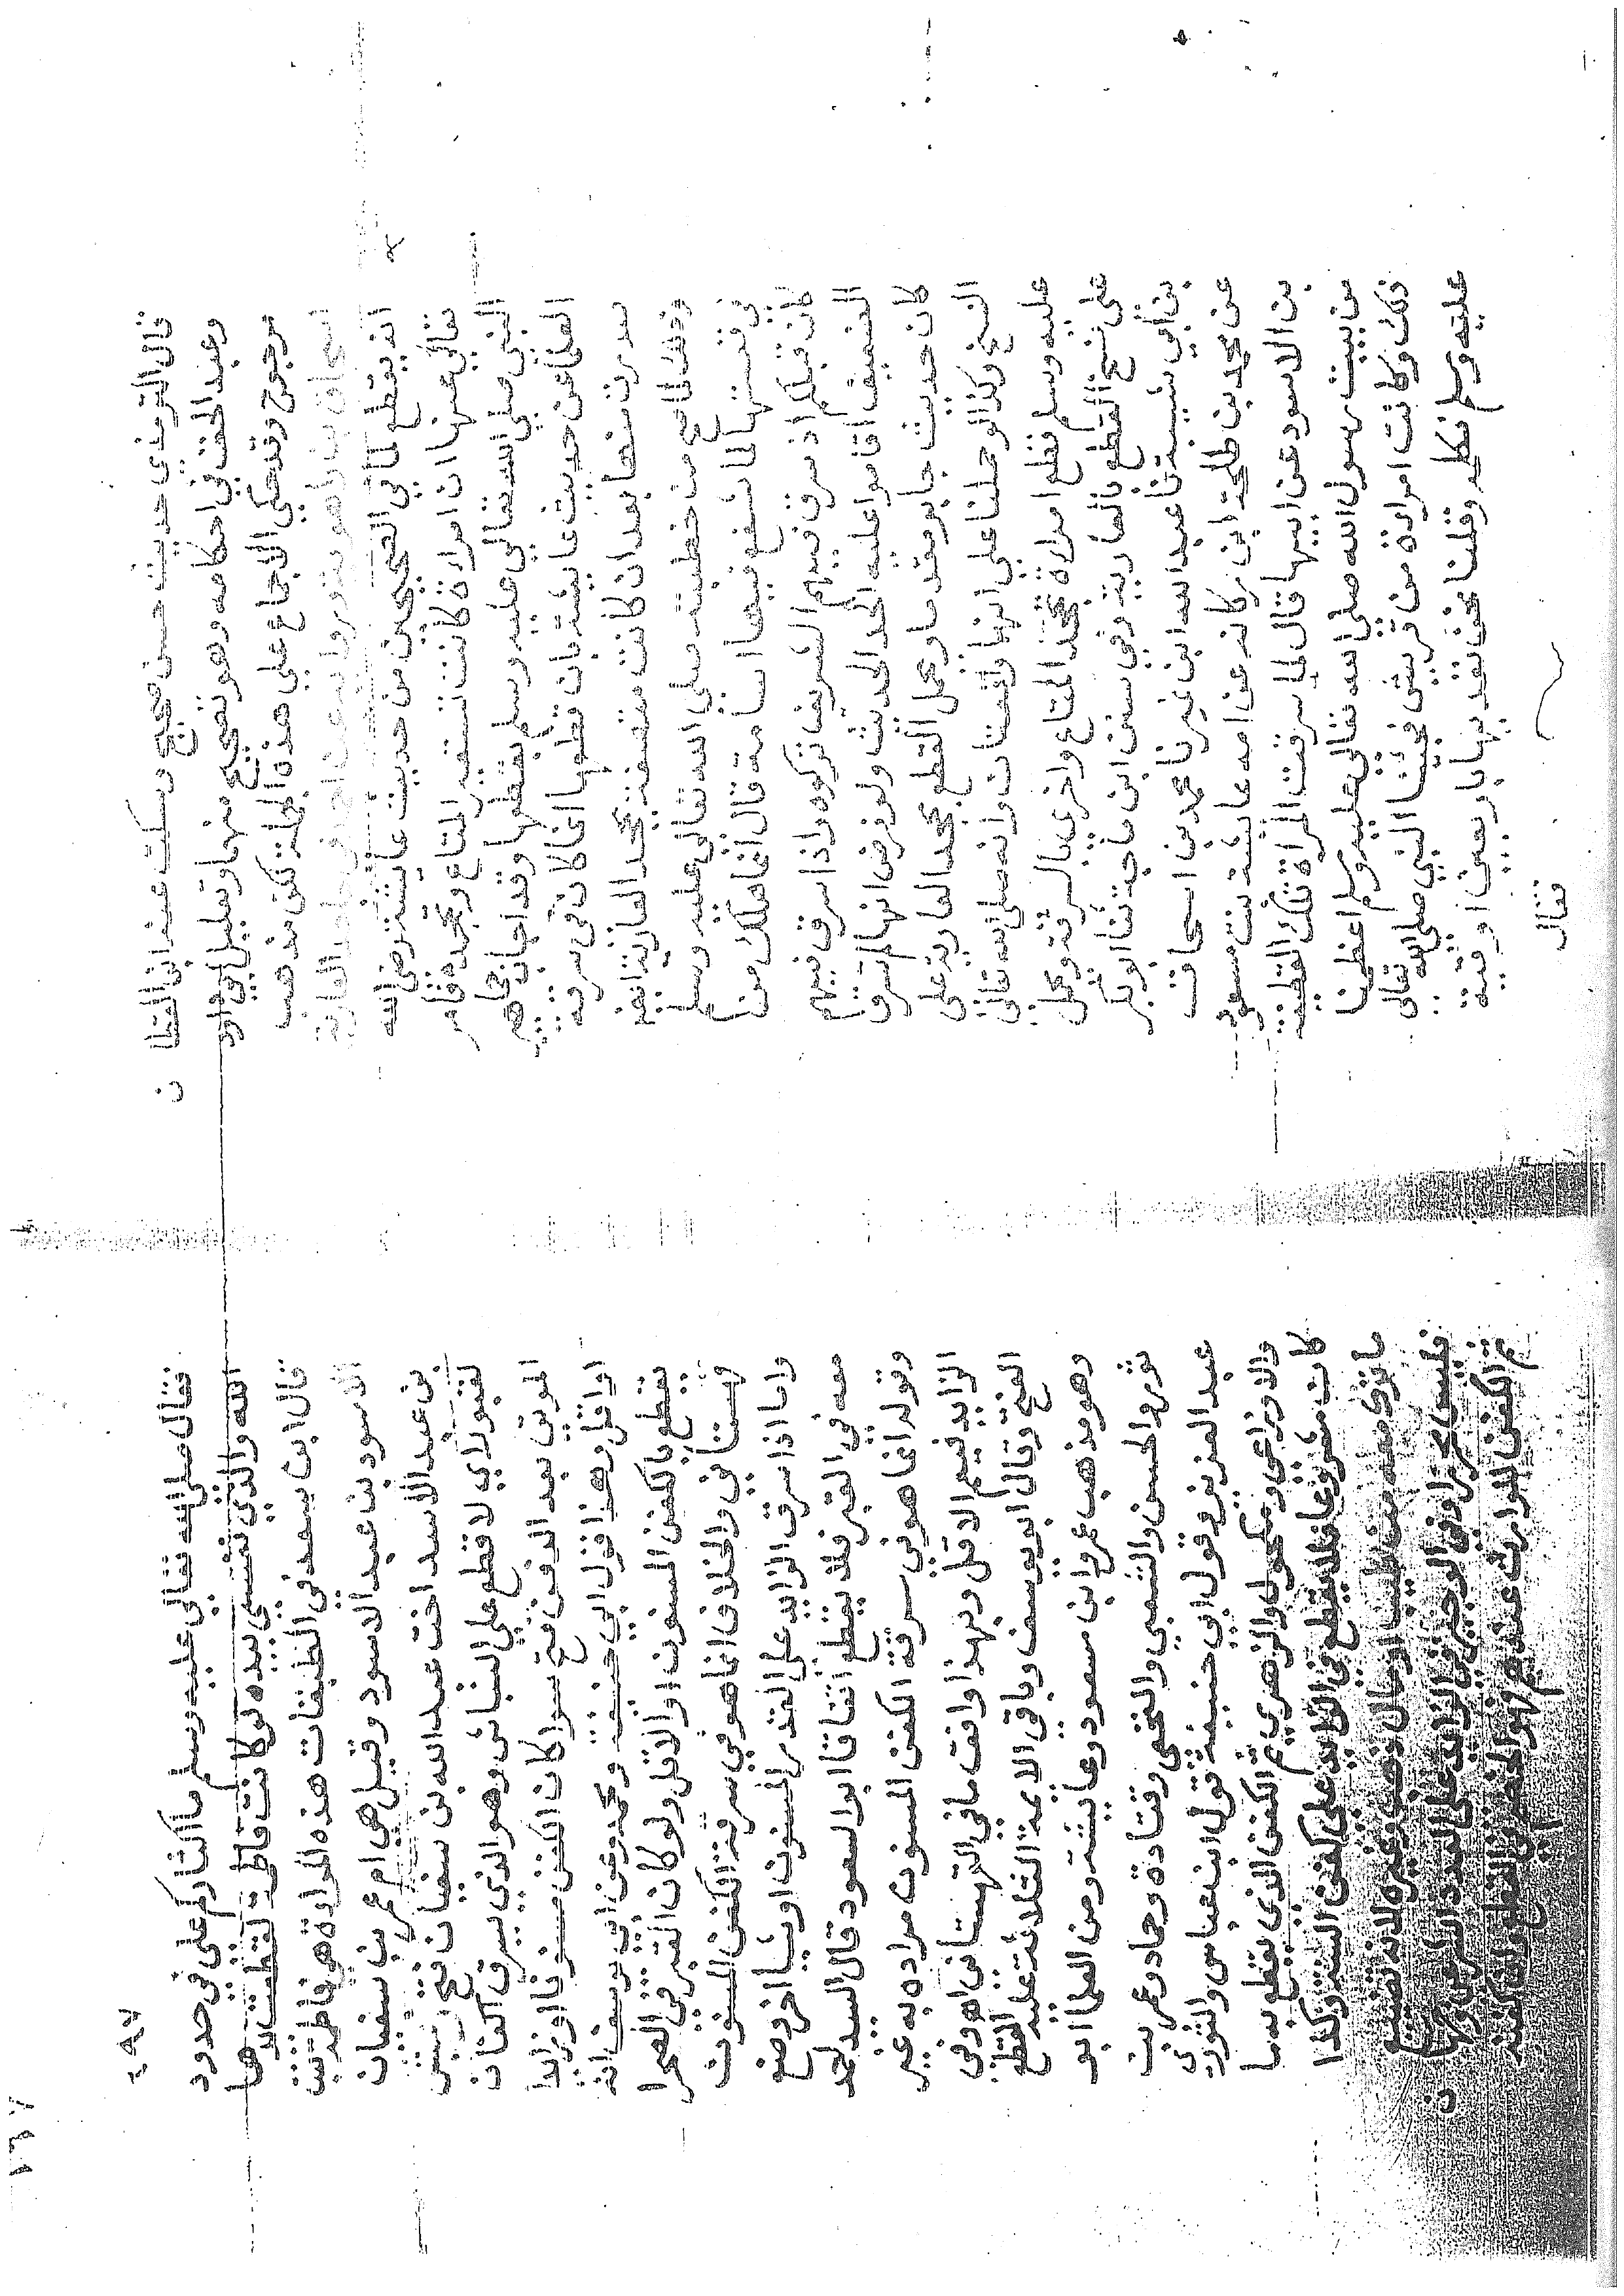 قال الترمذي حديث حسن صحيح وسكت عنه ابن القطان
وعبد الحق في احكامه وهو تصحيح منهما وتعليل ابي داود
مرجوح وقد حكي الاجماع علي هذه الجملة لكن مذهب
اسحاق بن راهويه ورواية عن احمد في جاحد العارية
انه يقطع لما في الصحيحين من حديث عائشة رضي الله
تعالي عنها ان امراة كانت تستعير المتاع وتجحده فامر
النبي صلي الله تعالي عليه وسلم بقطعها وقد اجاب جماهير
العلما عن حديث عايشة بان قطعها انما كان في سرقة
صدرت منها بعد ان كانت متصفة بجحد العارية ايضا
وذلك لما صح من خطبته صلي الله تعالى عليه وسلم
في قصتها لما شفع فيها اسامة قال انما هلك من
كان قبلكم اذ سرق فيهم الشريف تركوه واذا سرق فيهم
الضعيف اقاموا عليه الحد الحديث ولو فرض انها لم تسرق
كان حديث جابر مقدما وحمل القطع بجحد العارية على
النسخ وكذا لو حملنا على انها واقعتان وانه صلى الله تعالى
عليه وسلم قطع امراة بجحد المتاع واخرى بالسرقة وحمل
على نسخ القطع بالعارية وفي سنن ابن ماجة ثنا ابو بكر
بن أبي شيبة ثنا عبد الله ابن نمير نا محمد بن اسحاق
عن محمد بن طلحة ابن ركانه عن امه عايشة بنت مسعود
بن الاسود عن ابيها قال لما سرقت المرأة تلك القطيفة
من بيت رسول الله صلى الله تعالى عليه وسلم اعظمنا
ذلك وكانت امراة من قريش فجينا النبي صلى الله تعالى
عليه وسلم نكلمه وقلنا نحن نفديها باربعين اوقية
فقال
٤٩٧
فقال صلى الله تعالي عليه وسلم ما اكثاركم علي في حدود
الله والذي نفسي بيده لو كانت فاطمة لقطعت يدها
قال ابن سعد في الطبقات هذه المراة هي فاطمة بنت
الاسود بن عبد الاسود وقيل هي ام عمر بن سفيان
بن عبد الاسد اخت عبد الله بن سفيان فتح ونبش
لقبور اي لا قطع علي النباش وهو الذي يسرق اكفان
الموتى بعد الدفن فتح سوا كان الكفن مسنونا او زايدا
او اقل وهذا قول ابي حنيفة ومحمد وعن ابي يوسف انه
يقطع بالكفن المسنون او الاقل ولو كان القبر في الصحرا
قهستاني والخلاف انما هو في سرقة الكفن المسنون
واما اذا سرق الزايد على القدر المسنون او شيا اخر وضع
معه في القبر فلا يقطع اتفاقا ابو السعود قال السيد احمد
وقوله انما هو في سرقة الكفن المسنون مراده به غير
الزايد فيعم الاقل وبهذا وافق ما في القهستاني اهـ وفي
الفتح وقال ابو يوسف وباقي الايمة الثلاثة عليه القطع
وهو مذهب عمر وابن مسعود وعايشة ومن العلما ابو
ثور والحسن والشعبي والنخعي وقتادة وحماد وعمر بن
عبد العزيز وقول ابي حنيفة قول ابن عباس والثوري
والاوزاعي ومكحول والزهري ثم الكفن الذي يقطع به ما
كان مشروعا فلا يقطع في الزايد على كفن السنة وكذا
ما ترك معه من طيب او مال ذهب وغيره لانه تضييع
فليس بحرز وفي الوجيز في الزايد على العدد الشرعي وجهان
ثم الكفن للوارث عندهم فهو الخصم في القطع وان كفنه